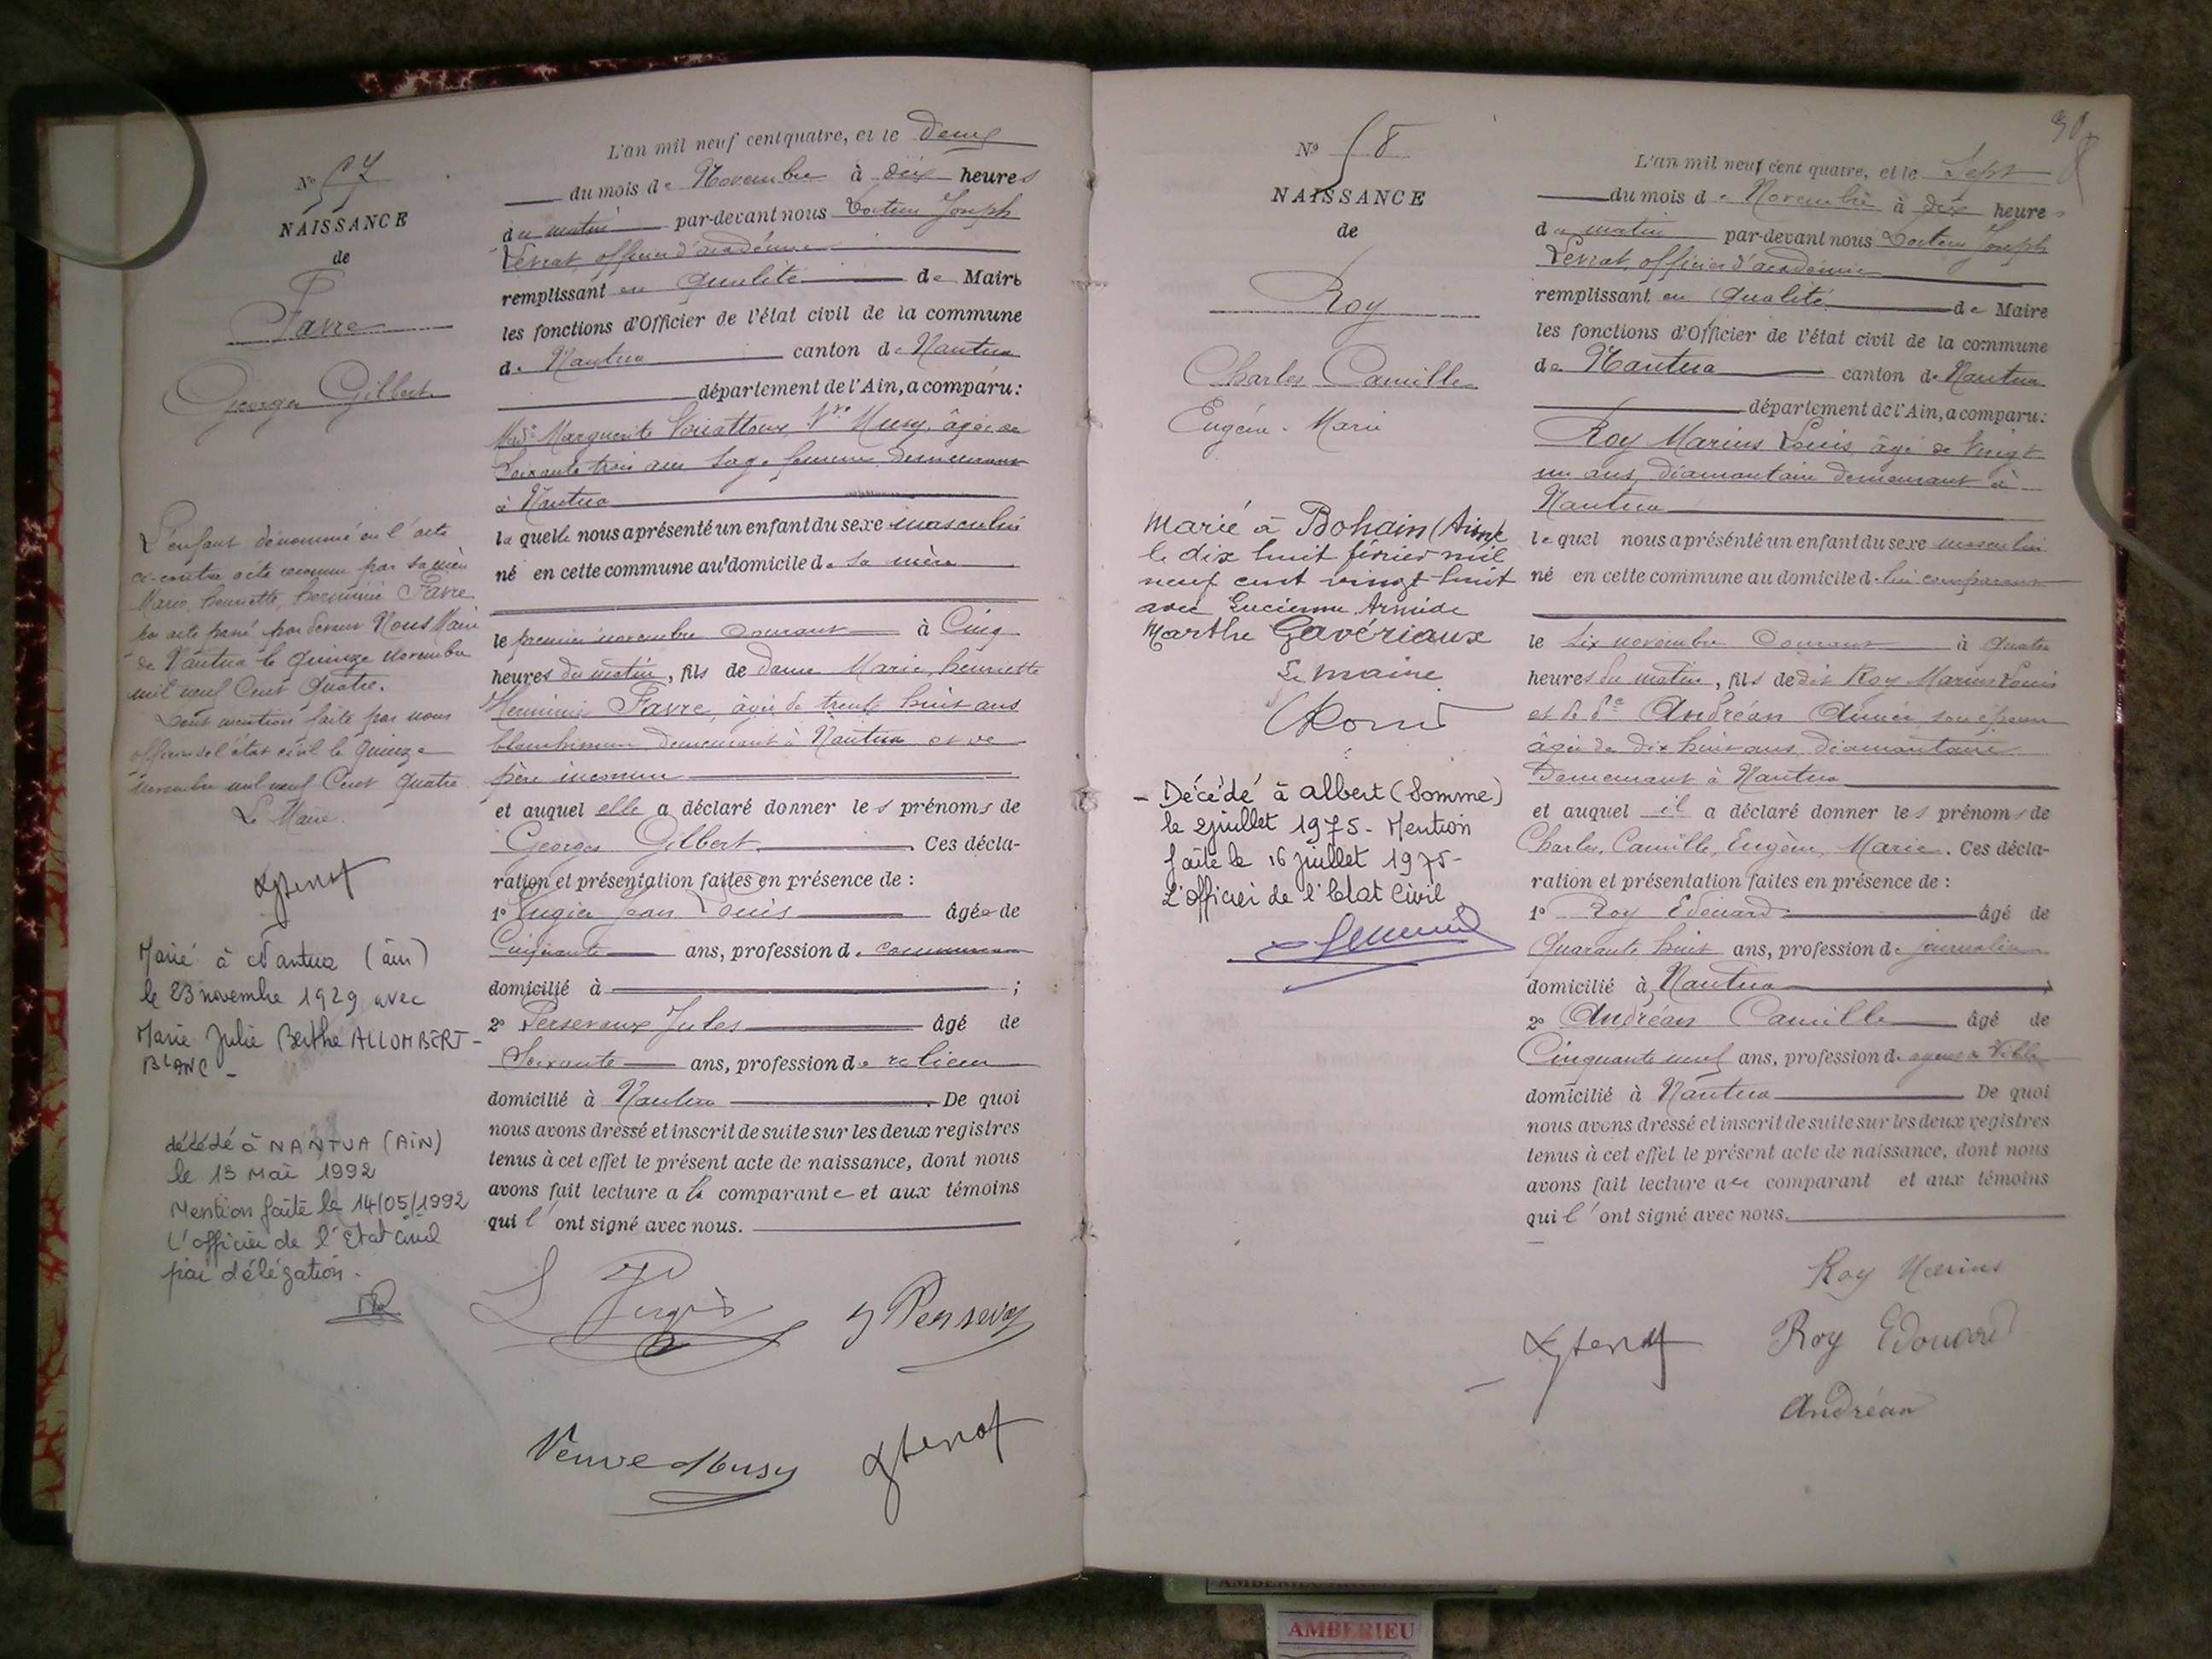 N° 57
NAISSANCE
de
Favre
Georges Gilbert
L'enfant dénommé en l'acte
ci-contre a été reconnu par sa mère
Marie, henriette, herminie Favre
par acte passé par devant Nous Maire
de Nantua le quinze novembre
mil neuf Cent quatre.
Dont mention faite par nous
officier de l'état civil le quinze
novembre mil neuf Cent quatre
Le Maire.
Marié à Nantua (ain)
le 23 novembre 1929 avec
Marie Julie Berthe ALLOMBERT-
BLANC -
décédé à NANTUA (AIN)
le 13 Mai 1992
Mention faite le 14/05/1992
L'officier de l'Etat Civil
par délégation.
L'an mil neuf cent quatre, et le Deux
du mois de Novembre à dix heures
du matin par-devant nous Docteur Joseph
officier d'académie
remplissant en qualité de Maire
les fonctions d'Officier de l'état civil de la commune
de Nantua canton de Nantua
département de l'Ain, a comparu :
Marguerite Vve Musy, âgée de
Soixante trois ans Sage femme demeurant
à Nantua
laquelle nous a présenté un enfant du sexe masculin
né en cette commune au domicile de sa mère
le premier novembre Courant à Cinq
heures du matin, fils de dame Marie, henriette
Herminie Favre, âgée de trente huit ans
demeurant à Nantua et de
père inconnu
et auquel elle a déclaré donner les prénoms de
Georges Gilbert. Ces décla-
ration et présentation faites en présence de :
1° Jean Louis âgé de
Cinquante ans, profession de
domicilié à ;
2° Jules âgé de
Soixante ans, profession de relieur
domicilié à Nantua. De quoi
nous avons dressé et inscrit de suite sur les deux registres
tenus à cet effet le présent acte de naissance, dont nous
avons fait lecture a la comparante et aux témoins
qui l'ont signé avec nous.
Veuve Musy
30
N° 58
NAISSANCE
de
Roy
Charles Camille
Eugène-Marie
Marié à Bohain (Aisne)
le dix huit février mil
neuf cent vingt-huit
avec Lucienne Armide
Marthe Gavériaux
Le maire
- Décédé à Albert (Somme)
le 2 juillet 1975 - Mention
faite le 16 juillet 1975-
L'officier de l'Etat Civil
L'an mil neuf cent quatre, et le Sept
du mois de Novembre à dix heures
du matin par-devant nous Docteur Joseph
officier d'académie
remplissant en qualité de Maire
les fonctions d'Officier de l'état civil de la commune
de Nantua canton de Nantua
département de l'Ain, a comparu :
Roy Marius Louis, âgé de Vingt
un ans, diamantaire demeurant à
Nantua
lequel nous a présenté un enfant du sexe masculin
né en cette commune au domicile de lui comparant
le Six novembre Courant à quatre
heures du matin, fils de dit Roy Marius Louis
et de de Andréan Aimée son épouse
âgée de dix huit ans diamantaire
Demeurant à Nantua
et auquel il a déclaré donner les prénoms de
Charles, Camille, Eugène, Marie. Ces décla-
ration et présentation faites en présence de :
1° Roy Edouard âgé de
Quarante huit ans, profession de journalier
domicilié à Nantua ;
2° Andréan Camille âgé de
Cinquante neuf ans, profession de agent de Ville
domicilié à Nantua De quoi
nous avons dressé et inscrit de suite sur les deux registres
tenus à cet effet le présent acte de naissance, dont nous
avons fait lecture au comparant et aux témoins
qui l'ont signé avec nous.
Roy Marius
Roy Edouard
Andréan
AMBERIEU